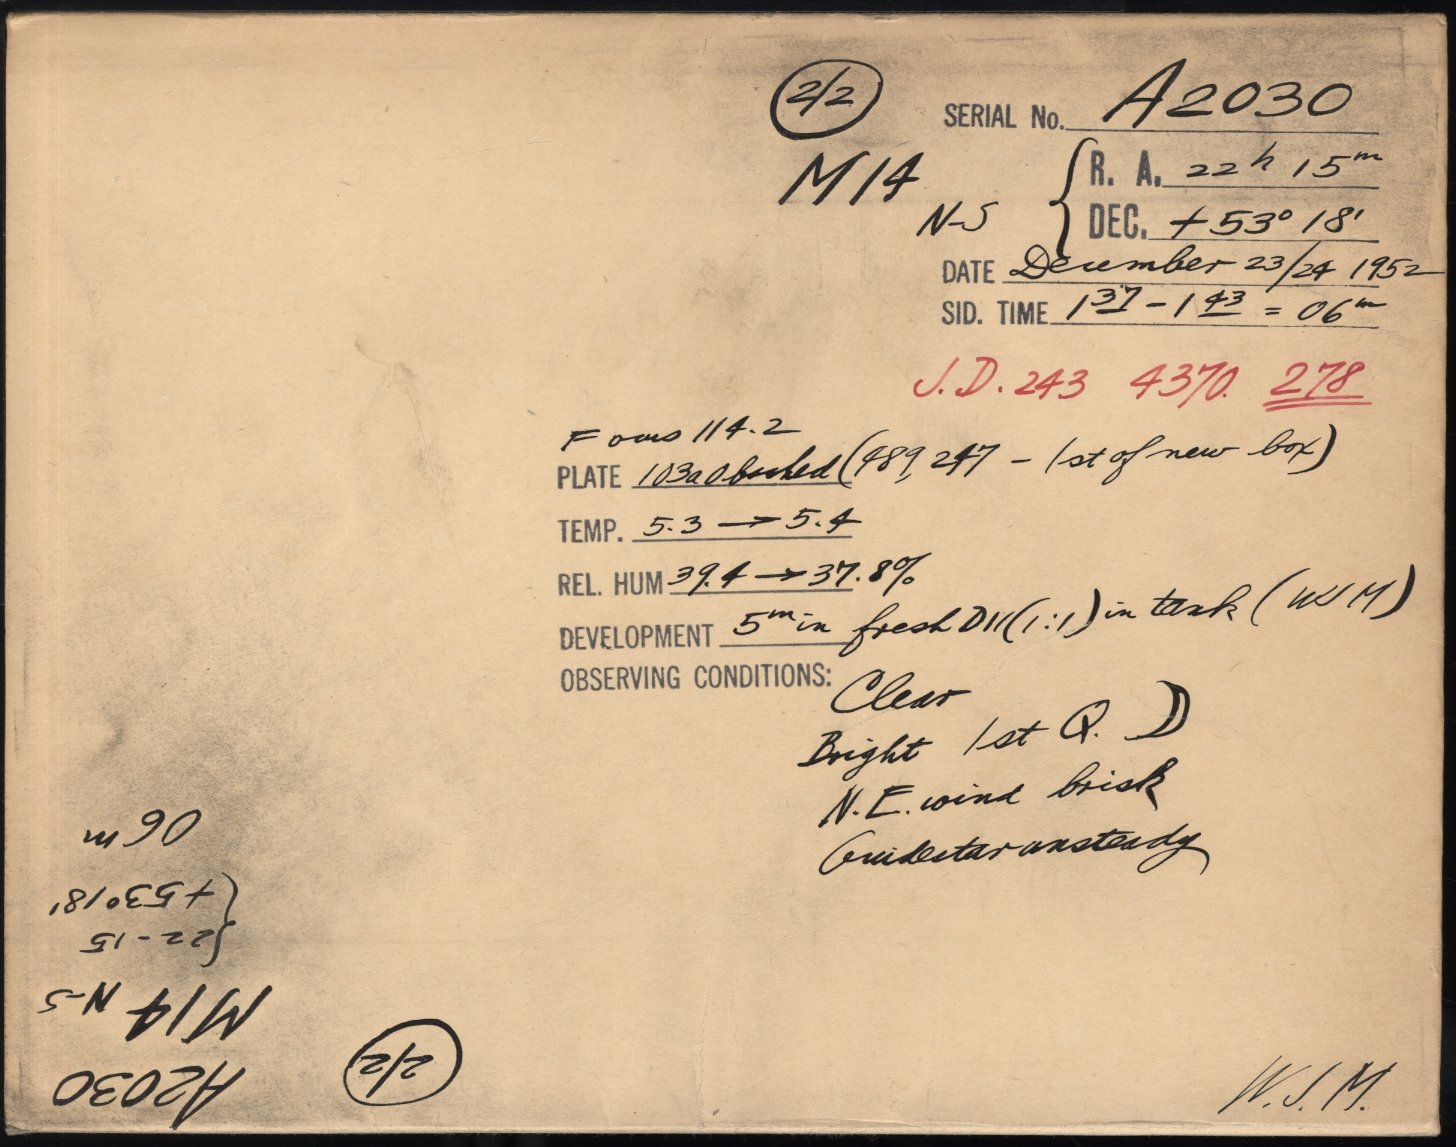 2/2
SERIAL No. A2030
M14
R. A. 22h 15m
N-S
DEC. +53° 18'
DATE December 23/24 1952
SID. TIME 1 37 - 1 43 = 06m
J.D. 243 4370. 278
Focus 114.2
PLATE 103aO backed (489,247 - 1st of new box)
TEMP. 5.3 → 5.4
REL. HUM 39.4 → 37.8%
DEVELOPMENT 5m in fresh D11 (1:1) in tank (WJM)
OBSERVING CONDITIONS:
Clear
Bright 1st Q. ☽
N.E. wind brisk
Guidestar unsteady
W.J.M.
A2030
2/2
M14 N-S
{22-15
+53° 18'
06m